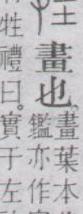 畫也
畫葉本
鑑亦作
牲禮曰實于左